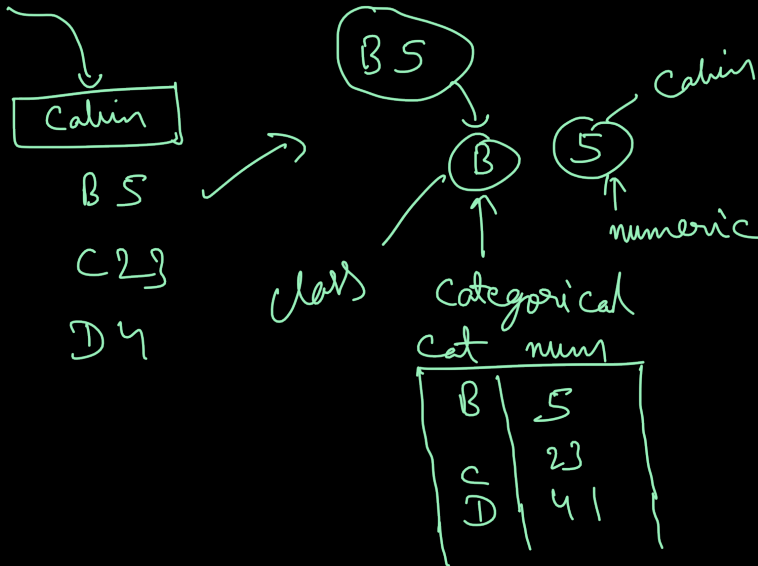 Cabin
B5
C23
D4
B5
B
5
Cabin
numeric
class
Categorical
Cat num
B 5
C 23
D 41